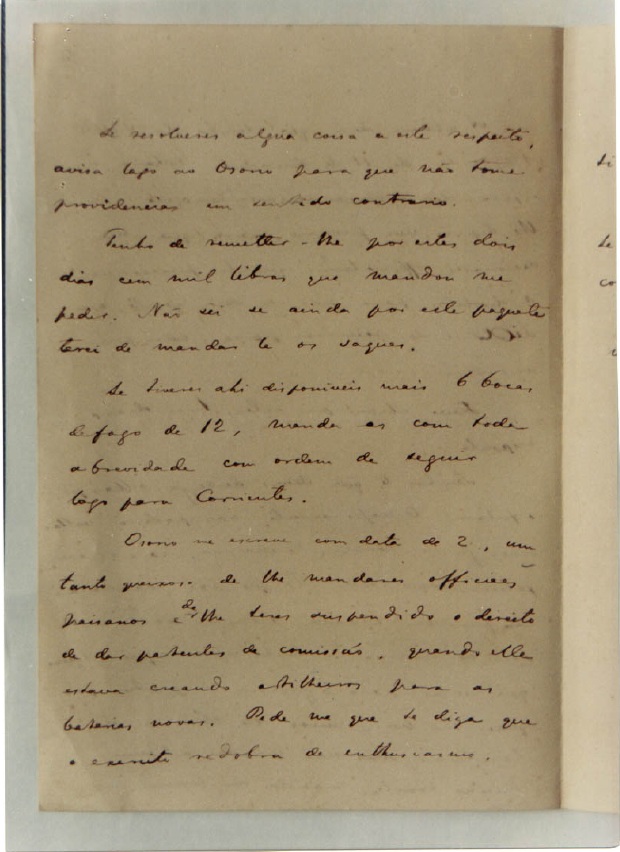 Se resolveres algũa cousa a este respeito,
avisa logo ao Osorio para que não tome
providencias em sentido contrario.
Tenho de remetter-lhe por estes dois
dias cem mil libras que mandou me
pedir. Não sei se ainda por este paquete
terei de mandar te os saques.
Se tiveres ahi disponiveis mais 6 bocas
de fogo de 12, manda as com toda
a brevidade com ordem de seguir
logo para Corrientes.
Osorio me escreve com data de 2, um
tanto queixoso de lhe mandares officiaes
paisanos e de lhe teres suspendido o direito
de dar patentes de comissão, quando elle
estava creando artilheiros para as
baterias novas. Pede me que te diga que
o exercito redobra de enthusiasmo.
Se
co